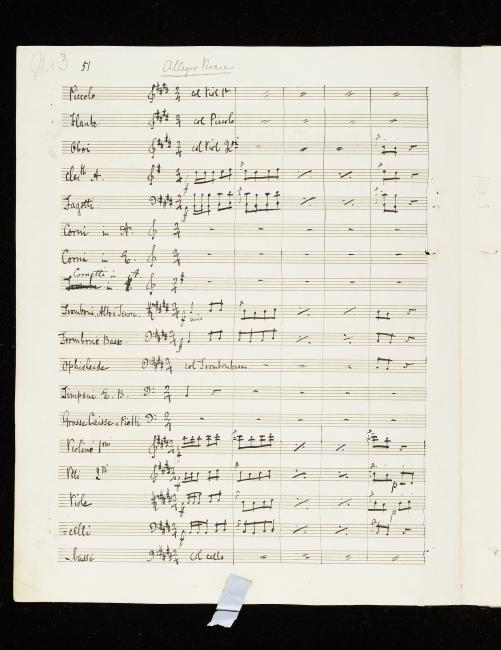 No 3 51 Allegro Vivace.
Piccolo col Viol 1o
Flauto col Piccolo
Oboi col Viol 2di
Clartti A.
Fagotti
Corni in A.
Corni in E.
Cornetti in A.
in
Tromboni. Alto e Tenore.
Trombone Basso.
Ophicleide col Trombonbasso
Timpani E. B.
Grosse Caisse e Piatti
Violino 1mi
2di
Viole
celli
bassi col cello